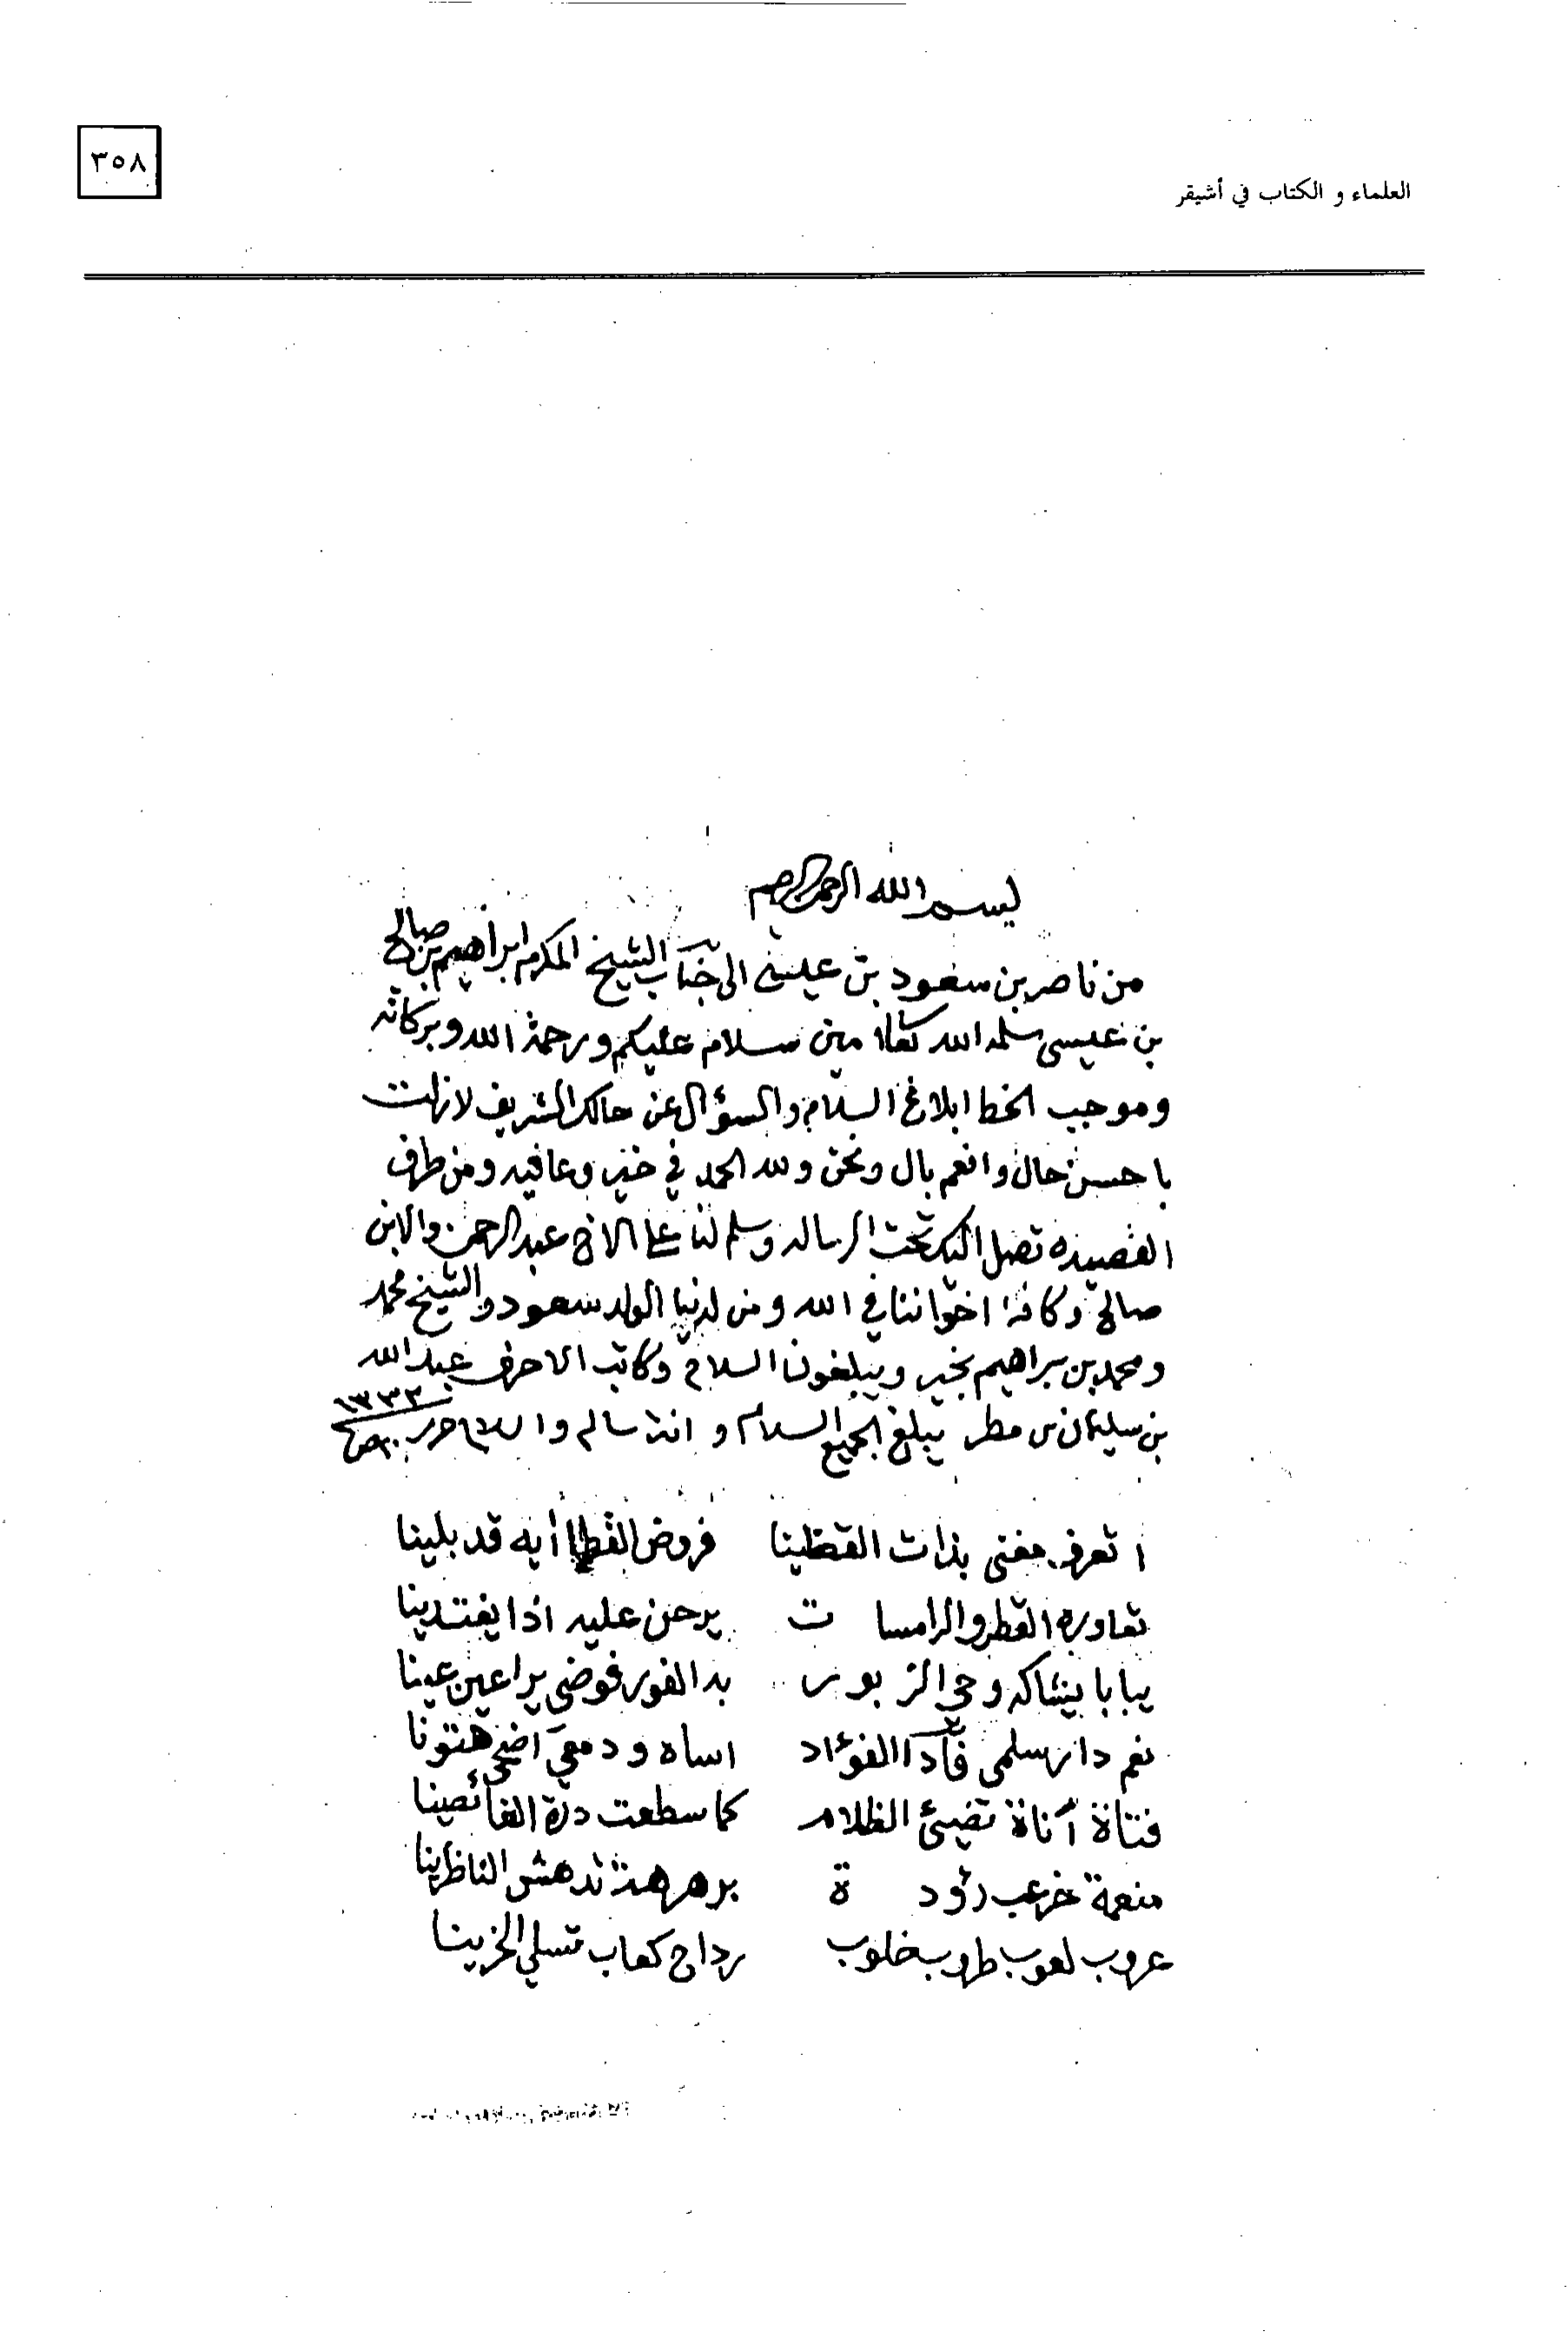 ٣٥٨
العلماء و الكتاب في أشيقر
بسم الله الرحمن الرحيم
من ناصر بن سعود بن عيسى الى جناب الشيخ المكرم ابراهيم بن صالح
بن عيسى سلمه الله تعالى امين سلام عليكم ورحمة الله وبركاته
وموجب الخط ابلاغ السلام والسؤال عن حالك الشريف لازلت
باحسن حال وانعم بال ونحن ولله الحمد في خير وعافيه ومن طرف
القصيده تصل اليك تحت الرساله وسلم لنا على الاخ عبدالرحمن والابن
صالح وكافة اخواننا في الله ومن لدنيا الولد سعود والشيخ محمد
ومحمد بن براهيم بخير ويبلغون السلام وكاتب الاحرف عبدالله
بن سليمان بن مطر يبلغ الجميع السلام وانت سالم والسلام حرر ٢٠ ص ١٣٣٢
اتعرف مغنى بذات القطينا فروض القطا أيه قد بلينا
تعاوره القطر والرامسات يرحن عليه اذا يغتدينا
يبابا يشاكه وحي الزبور به الفور فوضى يراعين عينا
نعم دار سلمى فآدا الفؤاد اساه ودمعي اضحى هتونا
فتاة أناة تضيئ الظلام كما سطعت درة الغائصينا
منعمة خرعب رؤدة برهرهة تدهش الناظرينا
عروب لعوب طروب خلوب رداح كعاب تسلي الحزينا